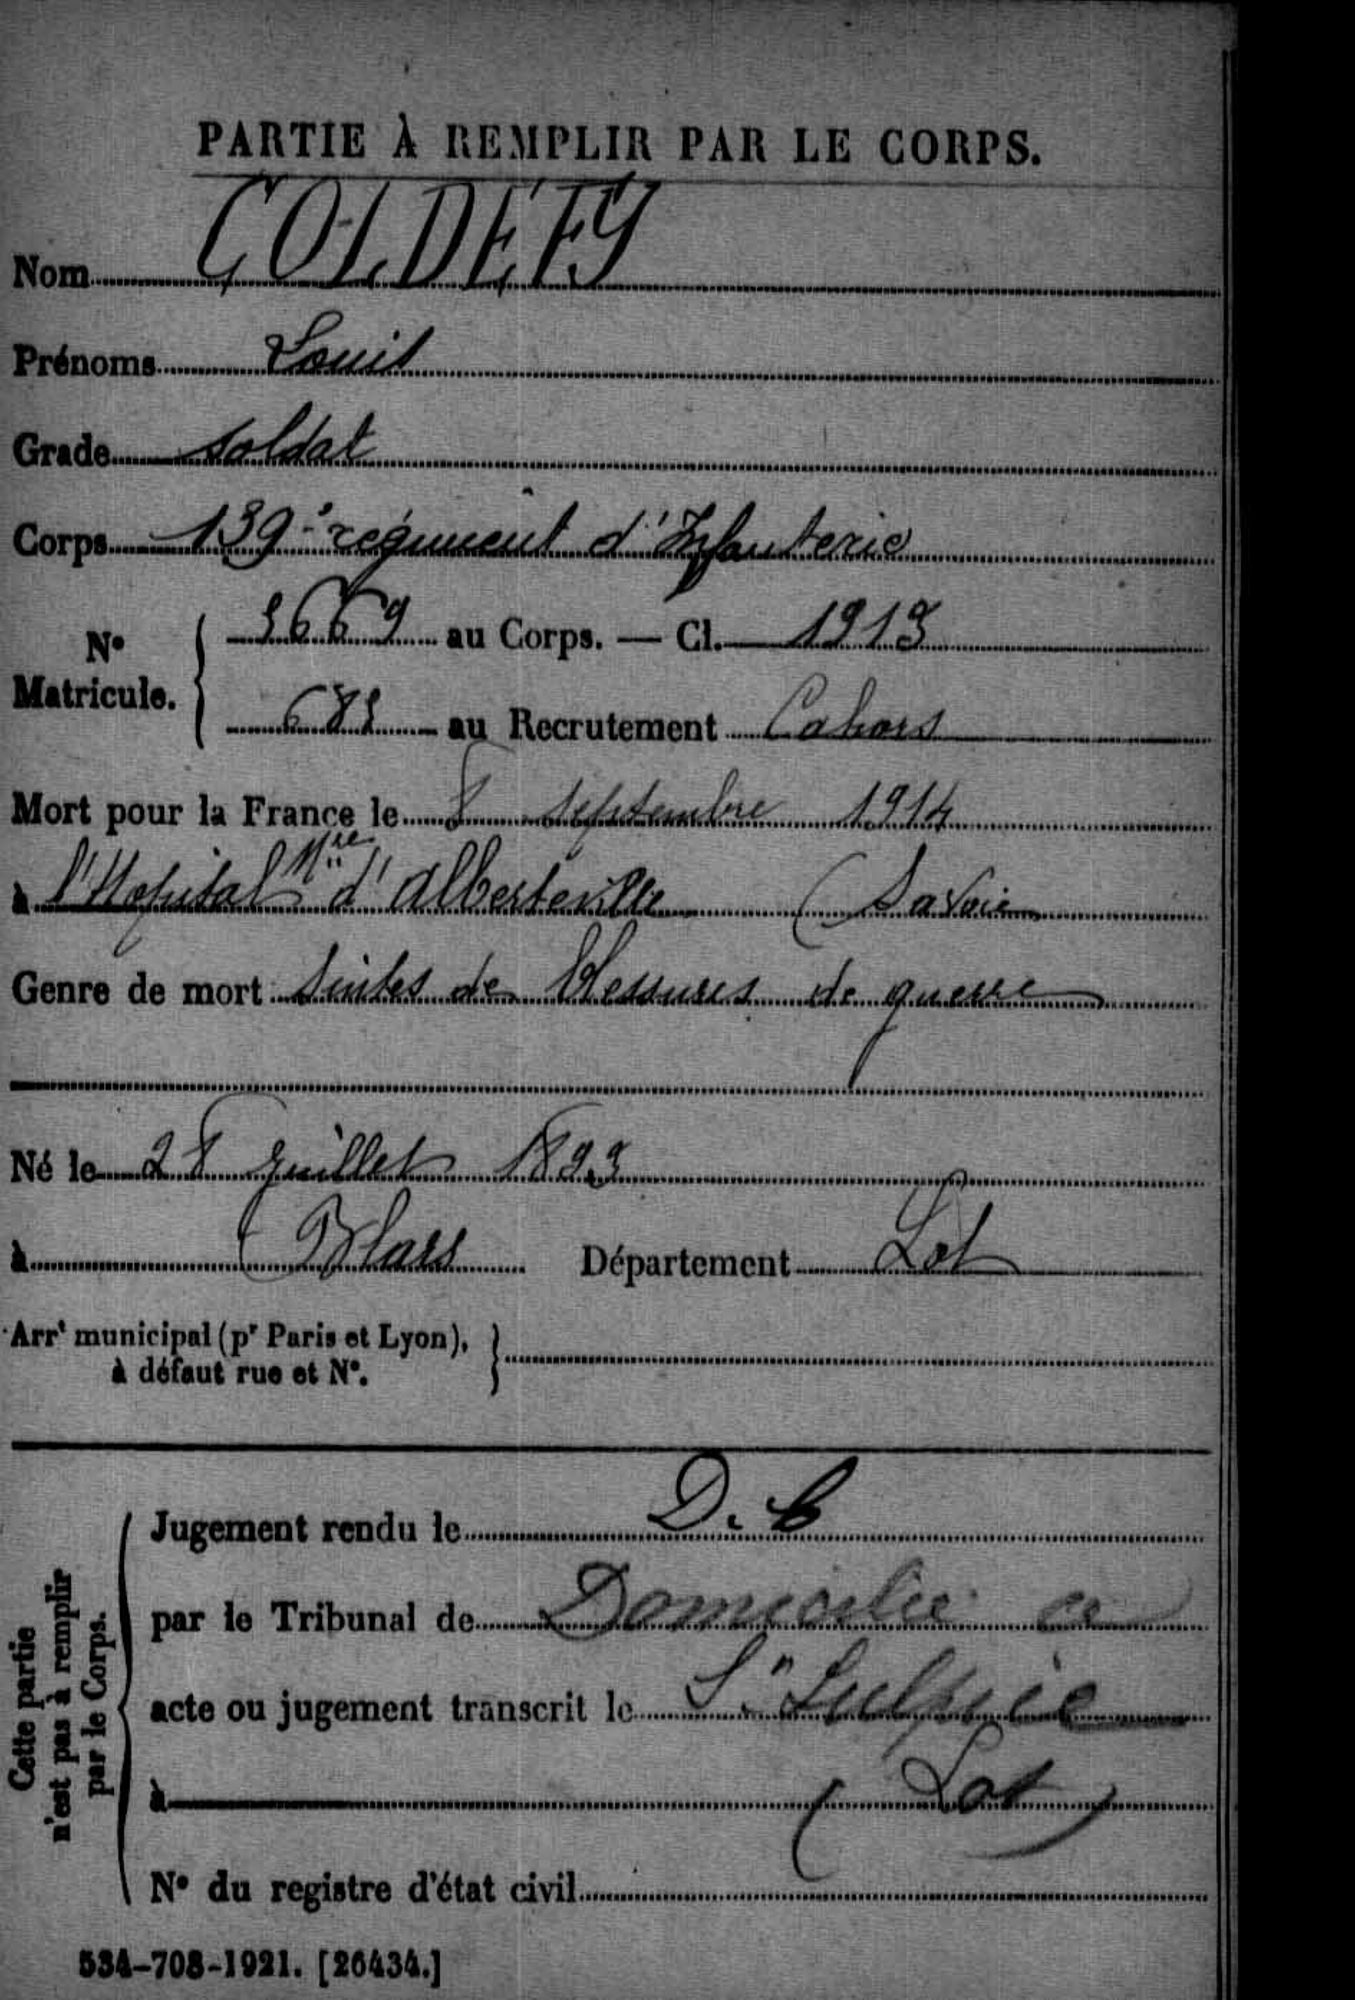 PARTIE À REMPLIR PAR LE CORPS.
Nom GOLDEFY
Prénoms Louis
Grade Soldat
Corps 139e régiment d'Infanterie
N° Matricule. { 3669 au Corps. — Cl. 1913
681 au Recrutement Cahors
Mort pour la France le 8 septembre 1914
à l'Hopital Mre d'Alberteville (Savoie
Genre de mort suites de blessures de guerre
Né le 28 juillet 1893
à Blars Département Lot
Arrt municipal (pr Paris et Lyon), }
à défaut rue et N°.
Cette partie
n'est pas à remplir
par le Corps.
Jugement rendu le D. C
par le Tribunal de Domicilié à
acte ou jugement transcrit le St Sulpice
à (Lot)
N° du registre d'état civil
534-708-1921. [26434.]